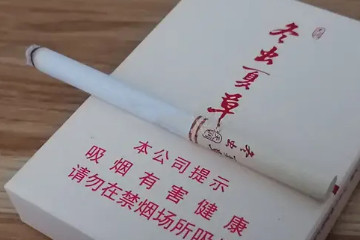 冬虫夏草
本公司提示
吸烟有害健康
请勿在禁烟场所吸